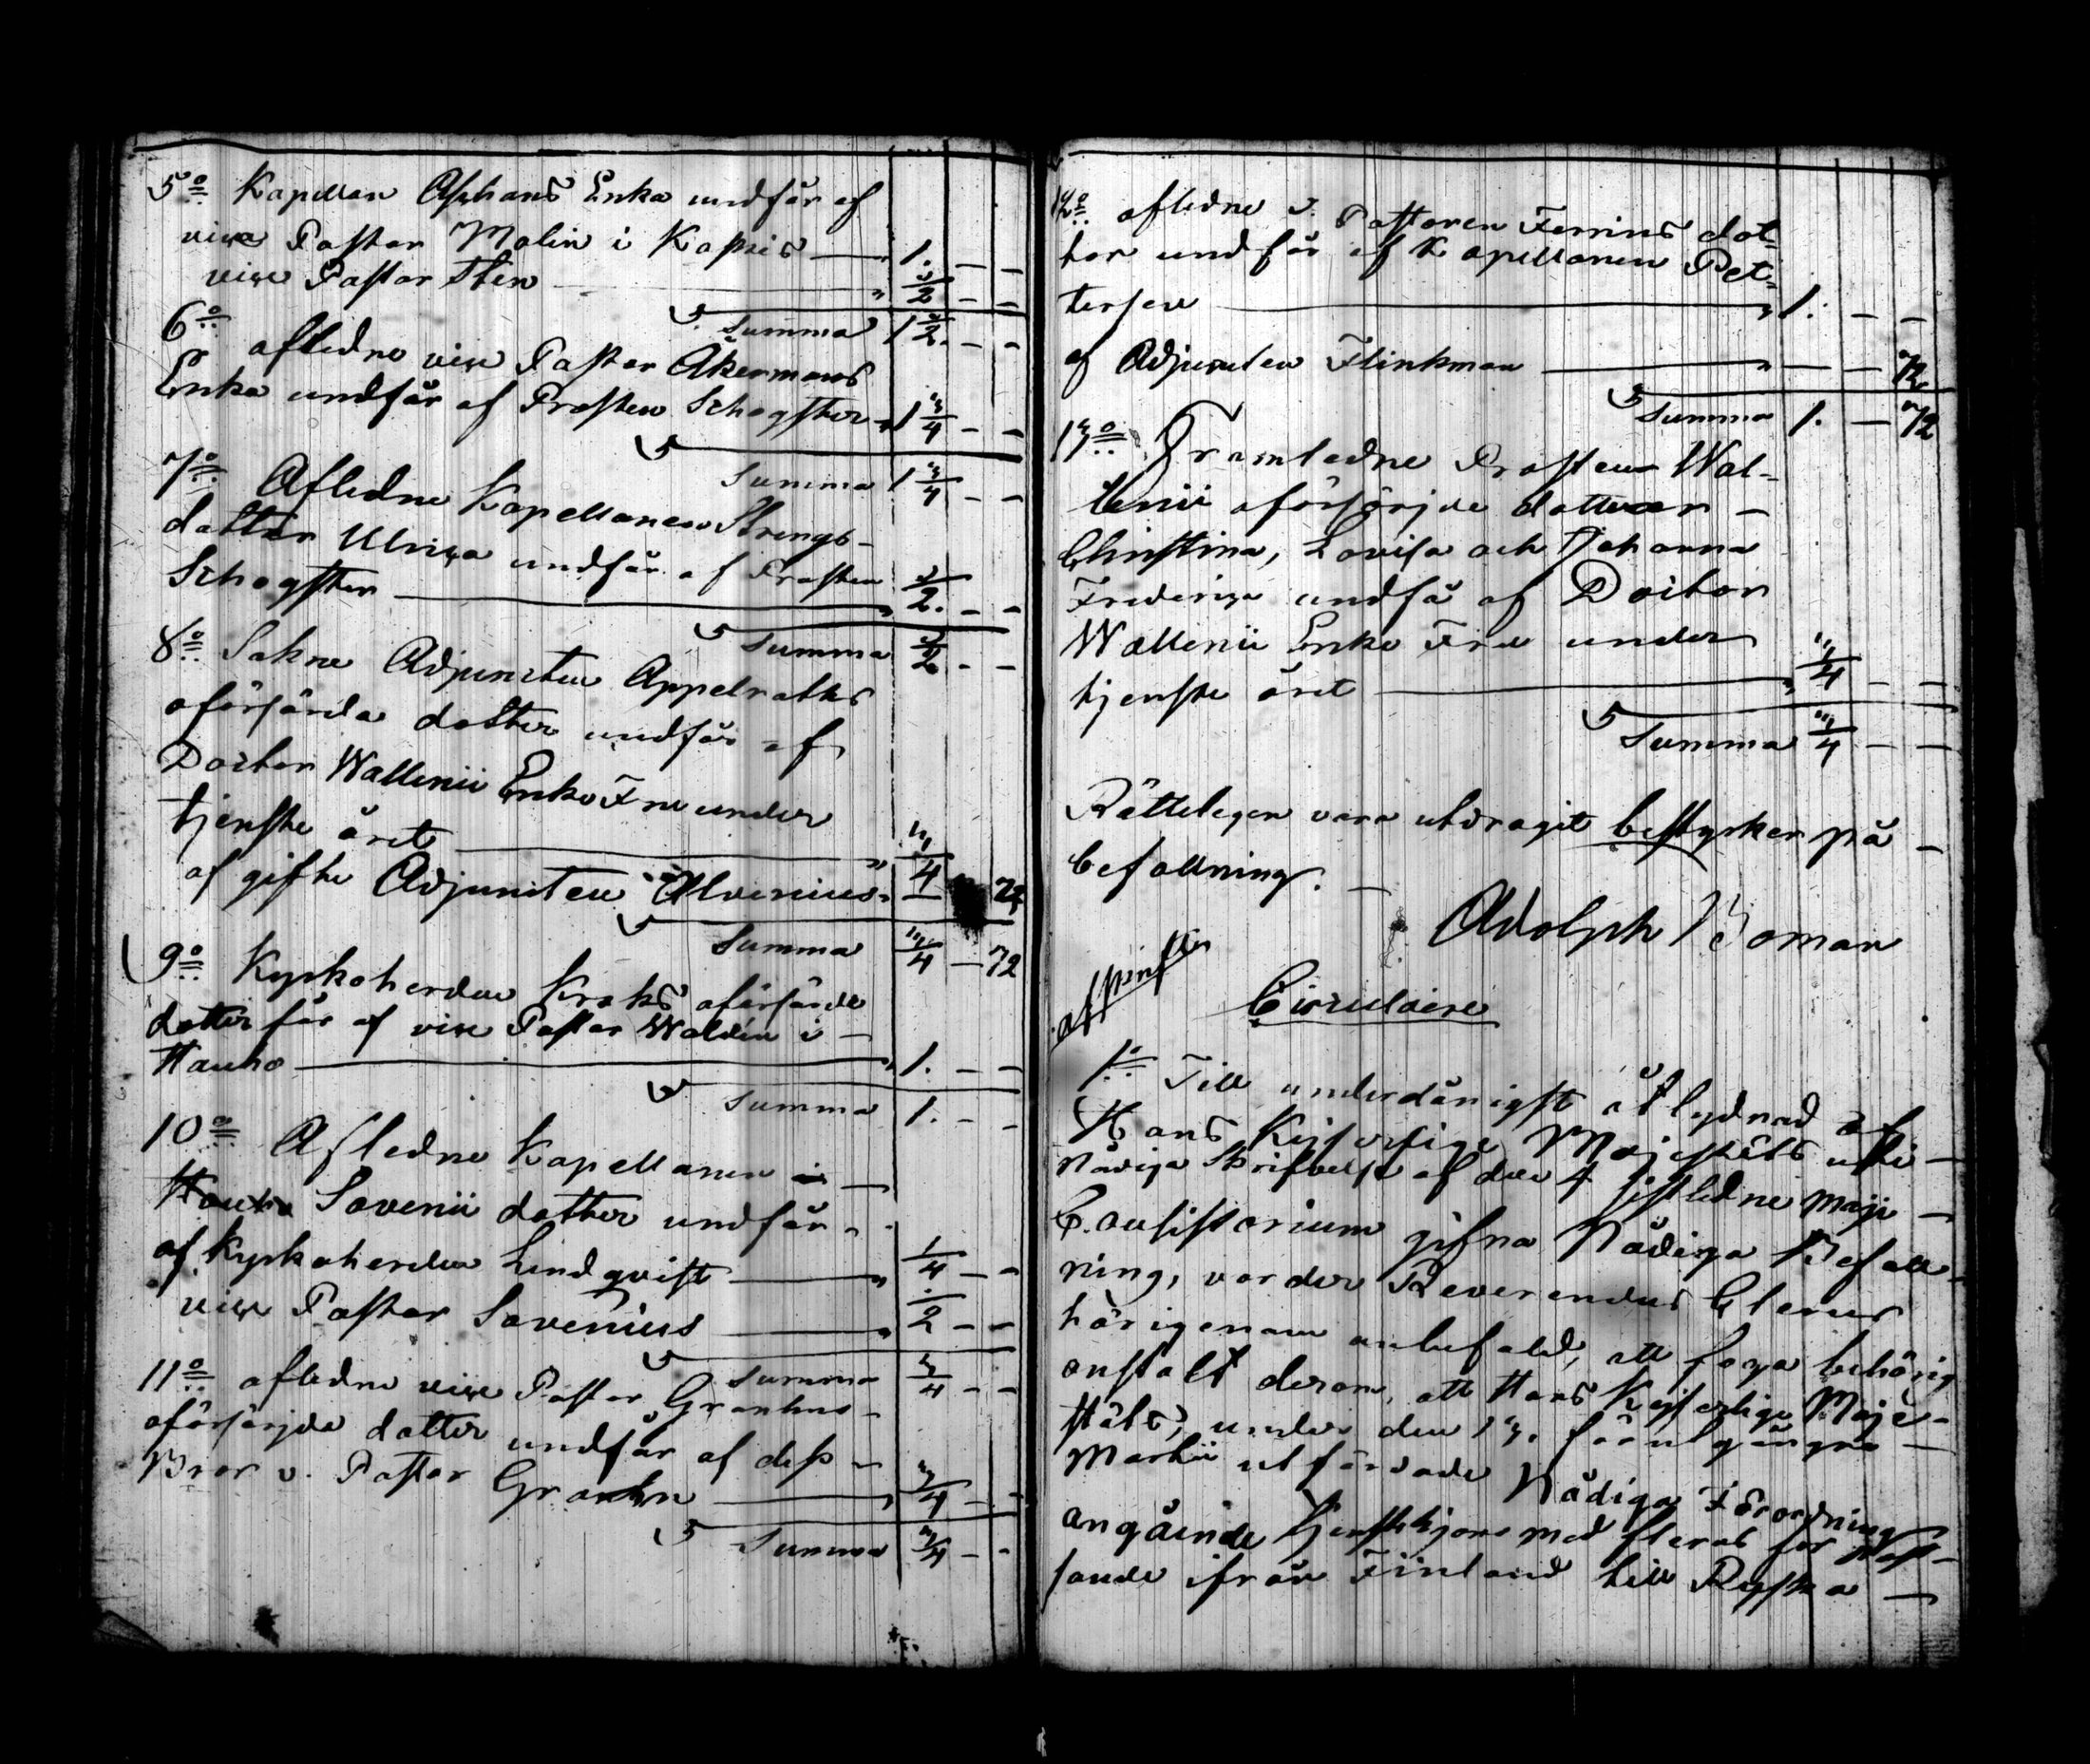 5:o Kapellan Asphans Enka undfår af
vice Pastor Molin i Kapsis 1. – –
vice Pastor Sten ½ – –
Summa 1 ½. – –
6:o afledne vice Pastor Åkermans
Enka undfår af Prosten Schogster 1 ¾ – –
Summa 1 ¾ – –
7:o Afledne Kapellanen Strengs
dotter Ulrica undfår af Prosten
Schogster ½. – –
Summa ½ – –
8:o Salme Adjuncten Appelroths
oförsörda dotter undfår af
Doctor Wallenii Enke Fru under
tjenste året ¼
af gifte Adjuncten Alvenius – 72
Summa ¼ – 72
9:o Kyrkoherden Kroks oförsörde
dotter får af vice Pastor Waldén i –
Hauho 1. – –
Summa 1. – –
10:o Afledne Kapellanen i –
Hauho Savenii dotter undfår
af Kyrkoherden Lindqvist ¼ – –
vice Pastor Savenius ½ – –
Summa ¾ – –
11:o afledne vice Pastor Granhns
oförsörjda dotter undfår af dess
Bror v. Pastor Granhn ¾ – –
Summa ¾ – –
12:o afledne v. Pastoren Ferrins dot-
ter undfår af Kapellanen Pet-
tersen 1. – –
af Adjuncten Flinkman – – 72
Summa 1. – 72
13:o Framledne Prosten Wal-
lenii oförsörjde dottrar –
Christina, Lovisa och Johanna
Frederica undfå af Doctor
Wallenii Enke Fru under
tjenste året ¼ – –
Summa ¼ – –
Rätteligen vara utdragit bestyrker på –
befallning. –
Adolph Boman
Circulaire
1:o Till underdånigst åtlydnad af
Hans Kejserlige Majestäts uti –
Nådiga Skrifvelse af den 4 sistledne Maji –
Consistorium gifna Nådiga Befall-
ning, varder Reverendus Clerus
härigenom anbefald, att foga behörig
anstalt derom, att Hans Kejserlige Maje-
stäts, under den 13. förutgångne –
Martii utfärdade Nådiga Förordning
angående tjenstehjons med fleras för
sande ifrån Finland till Ryska –